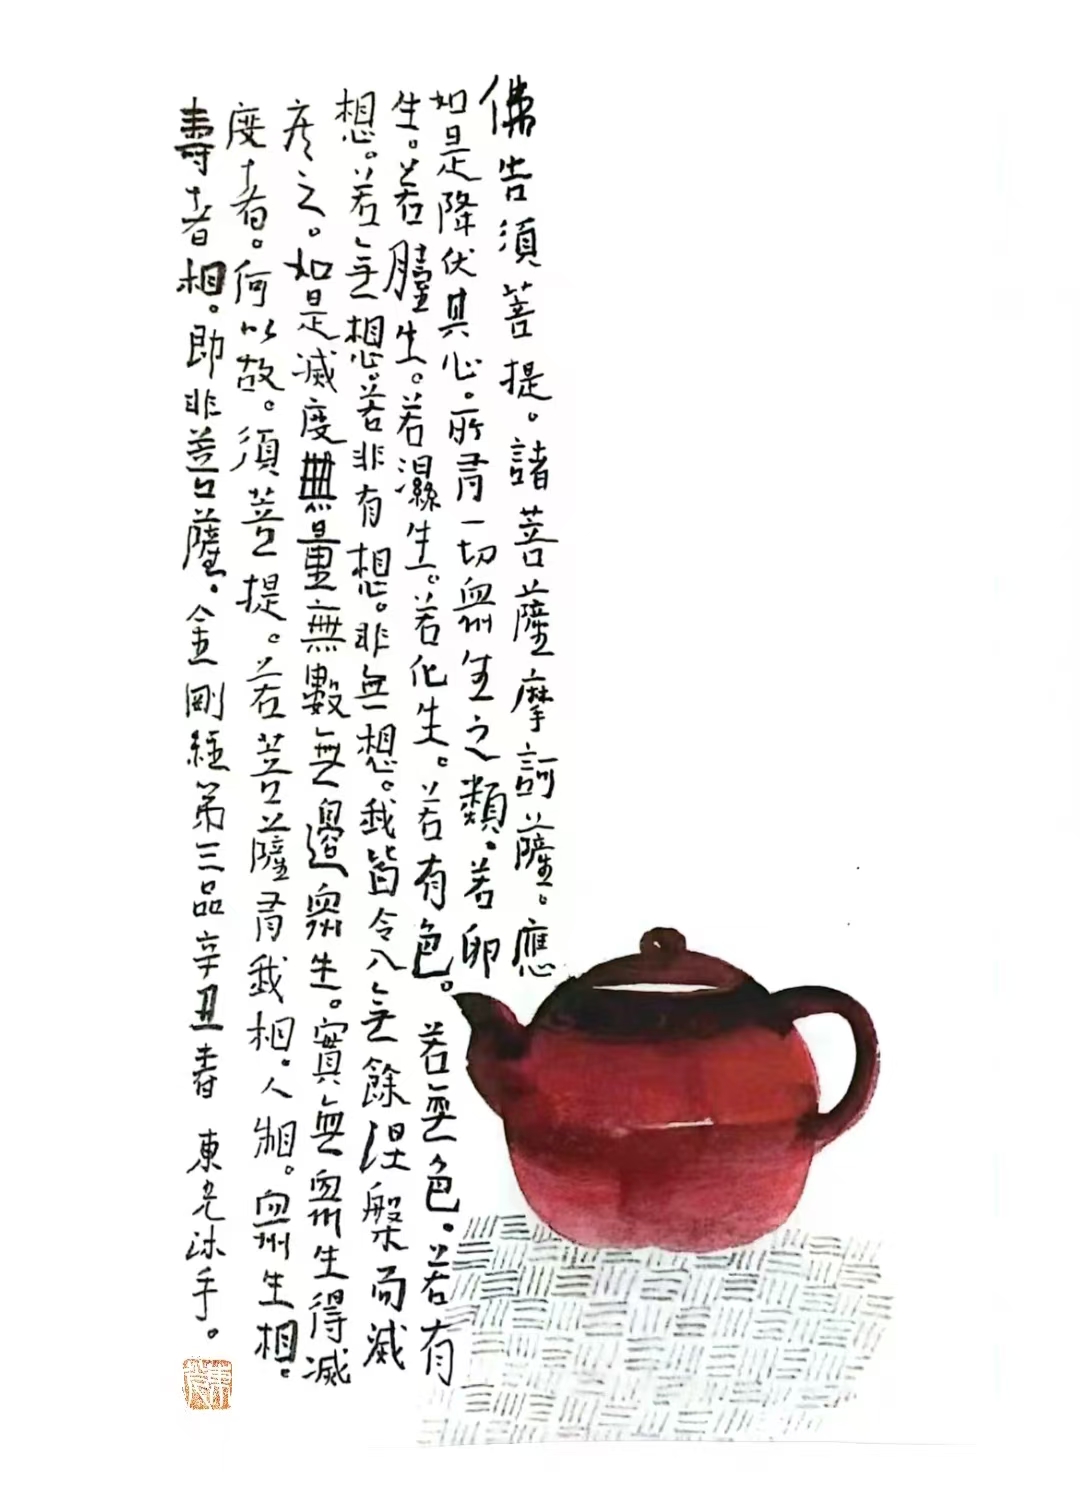 佛告須菩提。諸菩薩摩訶薩。應
如是降伏其心。所有一切衆生之類。若卵
生。若胎生。若濕生。若化生。若有色。若無色。若有
想。若無想。若非有想。非無想。我皆令入無餘涅槃而滅
度之。如是滅度無量無數無邊衆生。實無衆生得滅
度者。何以故。須菩提。若菩薩有我相。人相。衆生相。
壽者相。即非菩薩。金剛經第三品辛丑春 東光沐手。